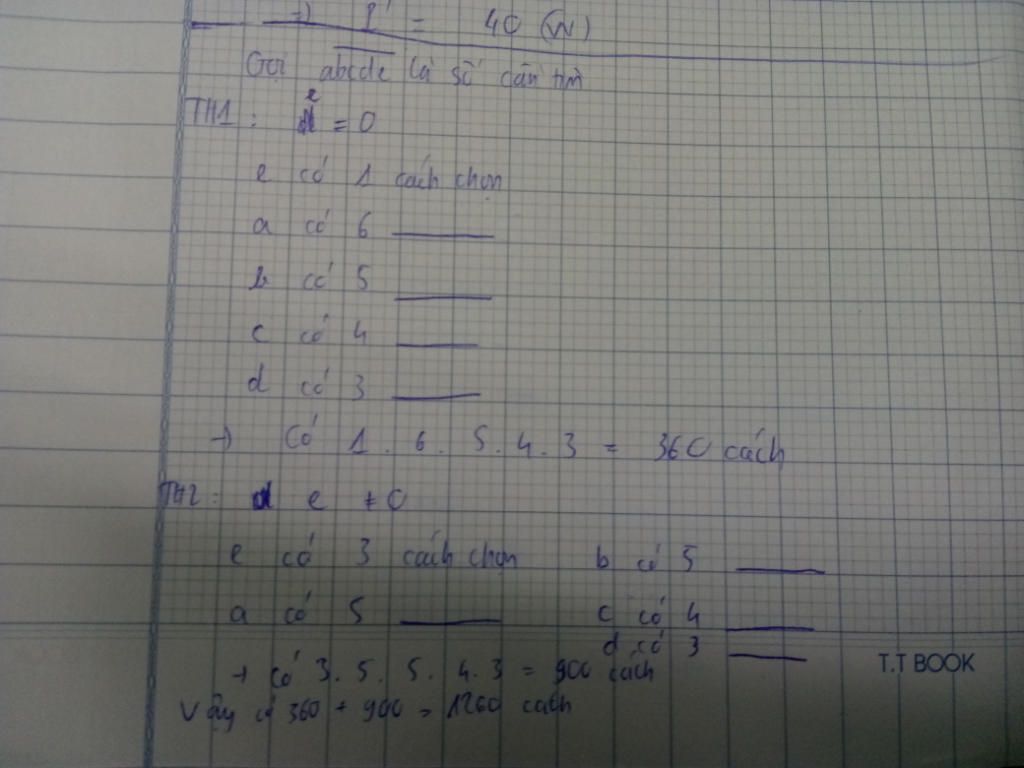 → P' = 40 (W)
Gọi abcde là số cần tìm
TH1: e = 0
e có 1 cách chọn
a có 6 ____
b có 5 ____
c có 4 ____
d có 3 ____
→ Có 1 . 6 . 5 . 4 . 3 = 360 cách
TH2: e ≠ 0
e có 3 cách chọn b có 5 ____
a có 5 ____ c có 4 ____
d có 3 ____
→ có 3 . 5 . 5 . 4 . 3 = 900 cách
T.T BOOK
Vậy có 360 + 900 = 1260 cách